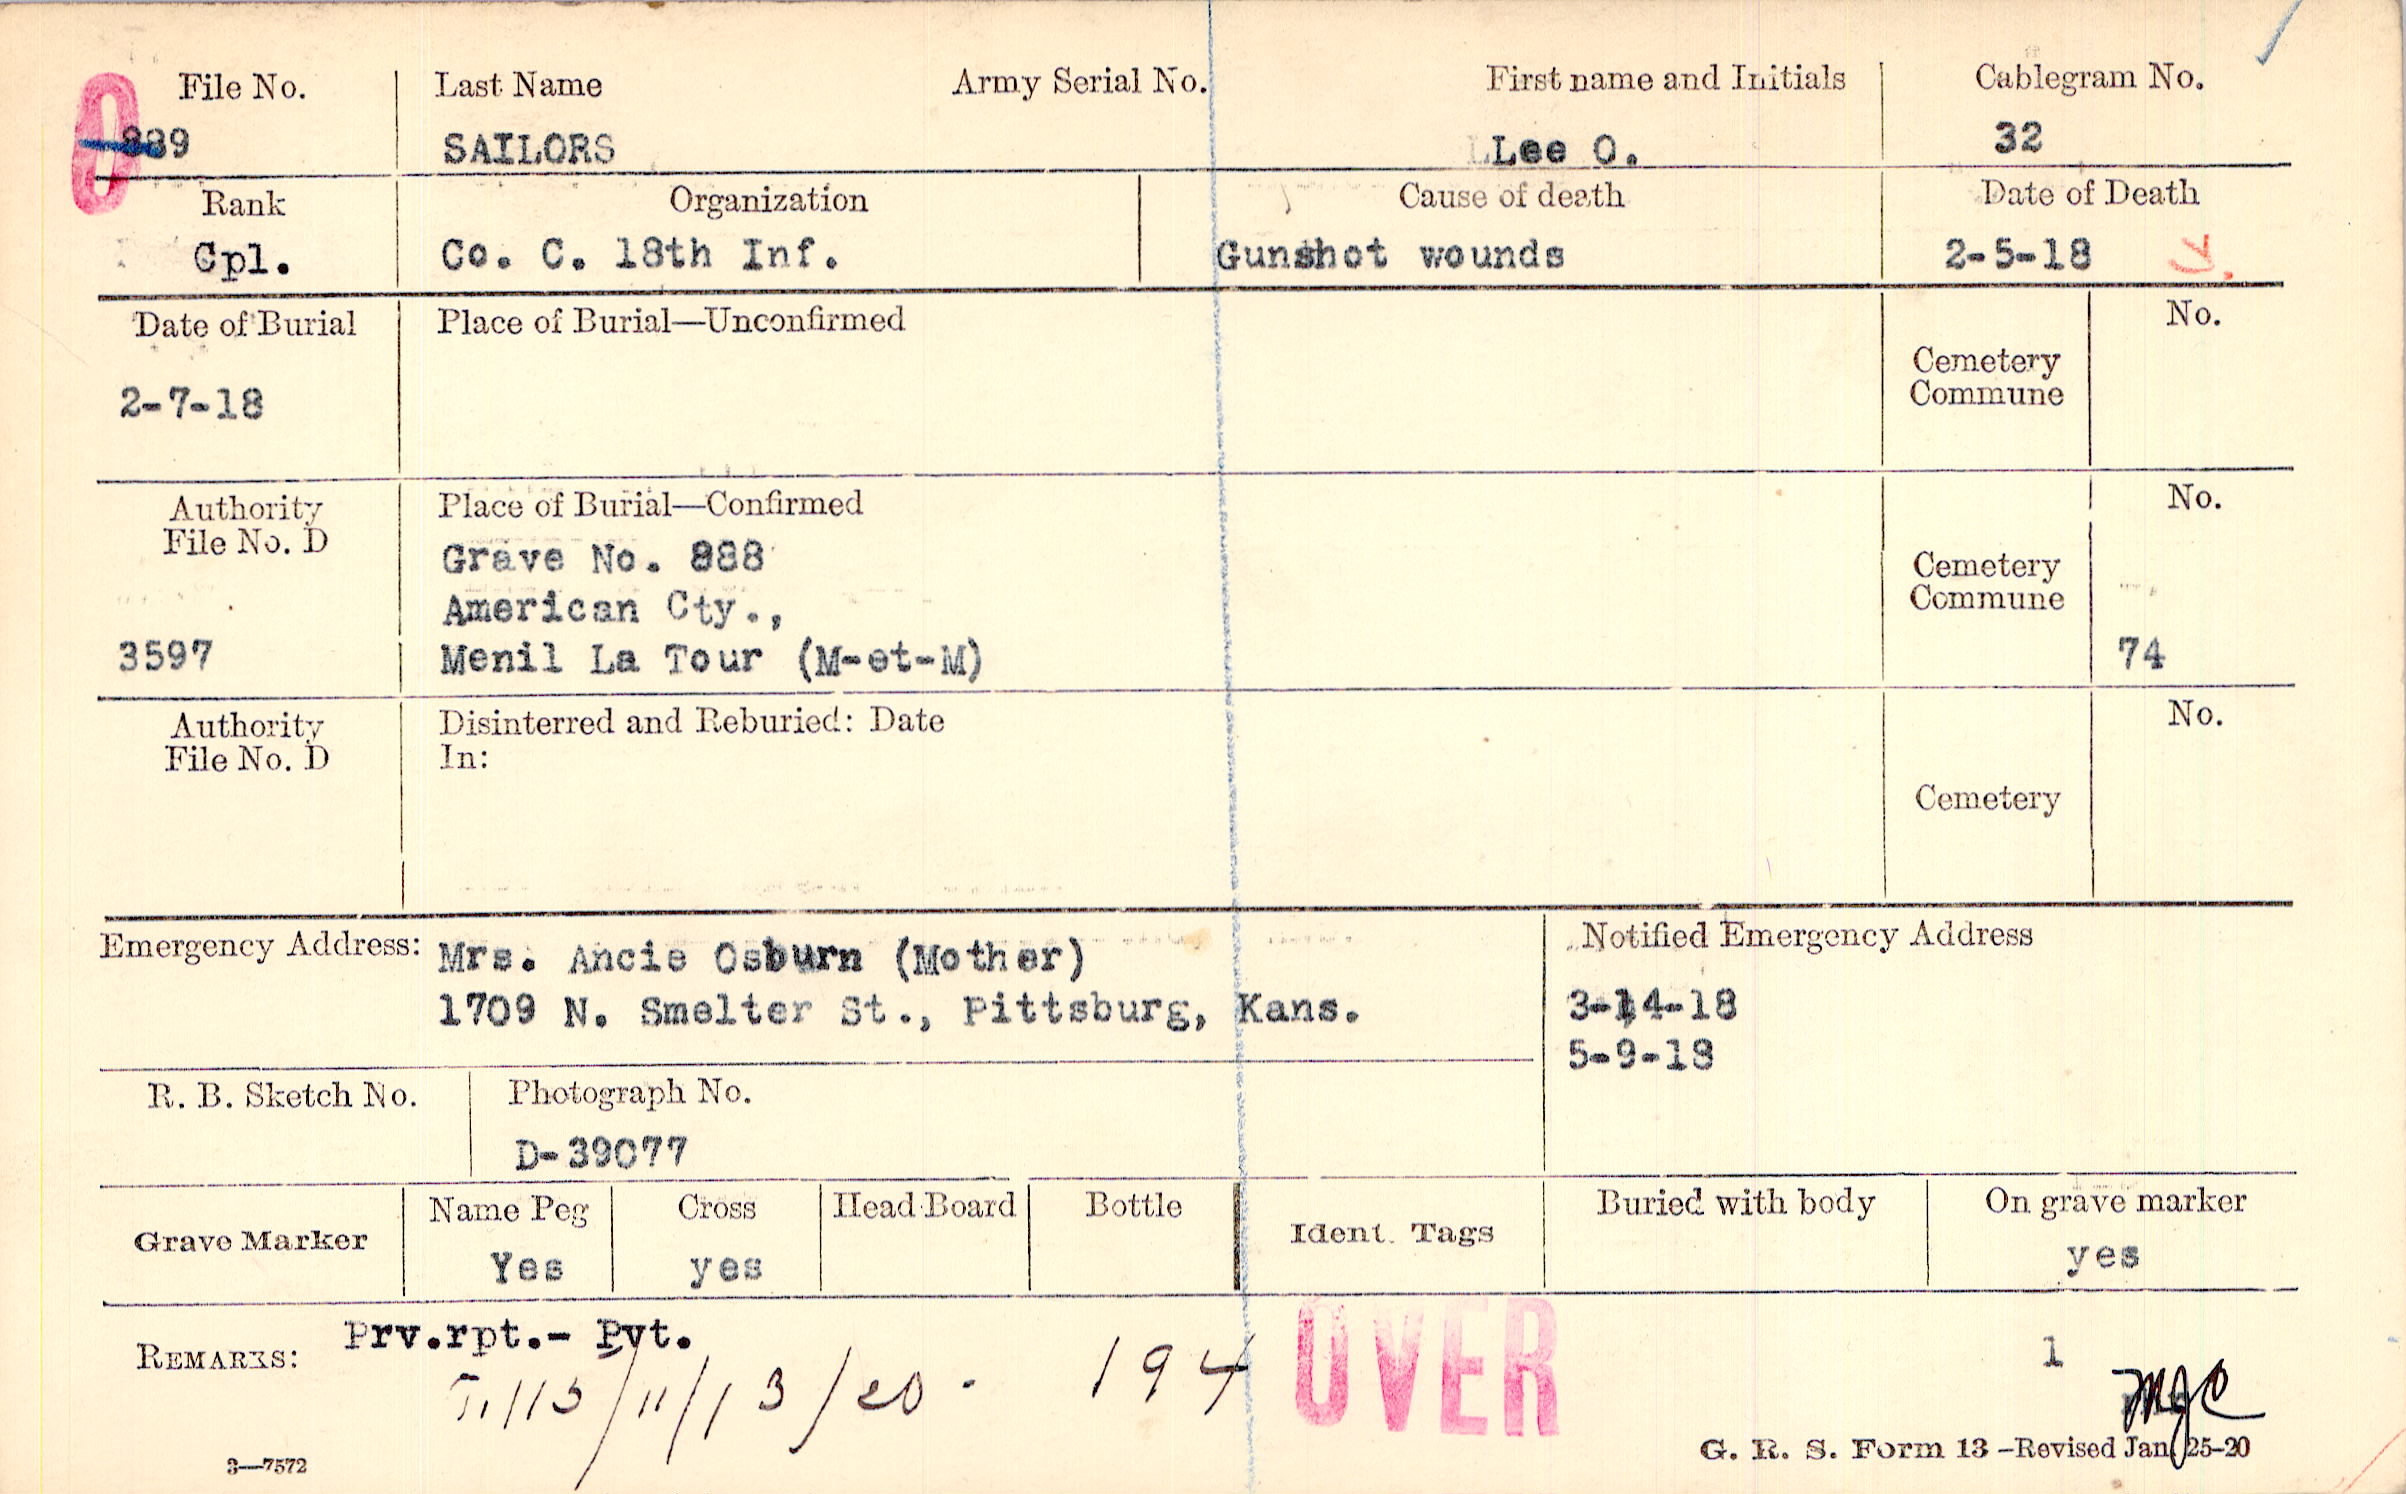 File No.
Last Name
Army Serial No.
First name and Initials
Cablegram No.
0
889
SAILORS
Lee O.
32
Rank
Organization
Cause of death
Date of Death
Cpl.
Co. C. 18th Inf.
Gunshot wounds
2-5-18
Date of Burial
Place of Burial—Unconfirmed
No.
Cemetery
Commune
2-7-18
Authority
File No. D
Place of Burial—Confirmed
No.
Grave No. 888
American Cty.,
Cemetery
Commune
3597
Menil La Tour (M-et-M)
74
Authority
File No. D
Disinterred and Reburied: Date
In:
No.
Cemetery
Emergency Address:
Mrs. Ancie Osburn (Mother)
1709 N. Smelter St., Pittsburg, Kans.
Notified Emergency Address
3-14-18
5-9-18
R. B. Sketch No.
Photograph No.
D-39077
Grave Marker
Name Peg
Yes
Cross
yes
Head Board
Bottle
Ident. Tags
Buried with body
On grave marker
yes
REMARKS:
Prv.rpt.- Pvt.
/11/13/20-
194
OVER
1
MJC
3—7572
G. R. S. Form 13 –Revised Jan. 25-20